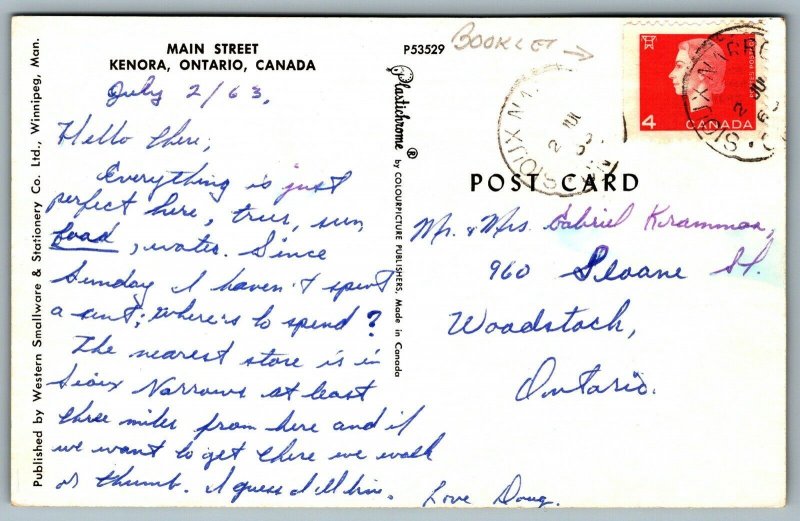 MAIN STREET
KENORA, ONTARIO, CANADA
July 2/63.
Hello there,
Everything is just
perfect here, trees, sun,
food, water. Since
Sunday I haven't spent
a cent; where's to spend?
The nearest store is in
Sioux Narrows at least
three miles from here and if
we want to get there we walk
or thumb. I guess I'll live.
Love Doug.
Published by Western Smallware & Stationery Co. Ltd., Winnipeg, Man.
P53529
Plastichrome ® by COLOURPICTURE PUBLISHERS. Made in Canada
BOOKLET →
POST CARD
Mr. & Mrs. Gabriel
960 Sloane St.
Woodstock,
Ontario.
4 CANADA
SIOUX NARRO
2 JUL
SIOUX N
2 JUL